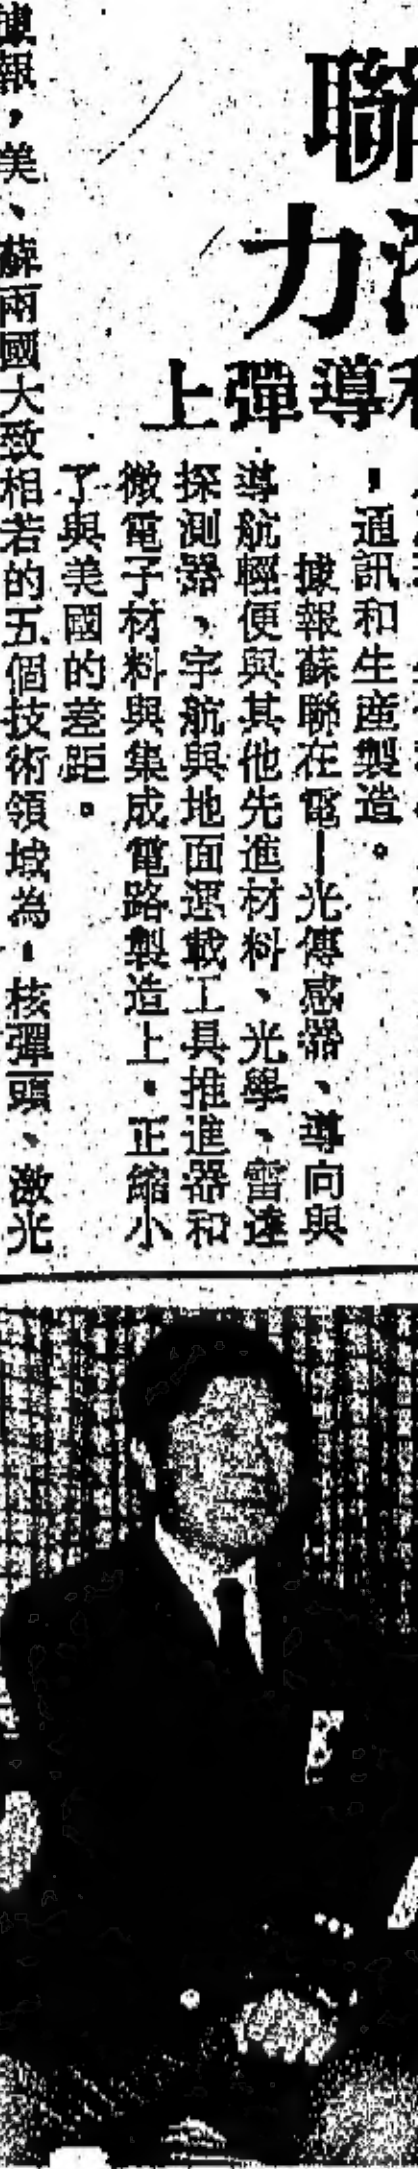 聯
力
導彈上
通訊和生產製造。
據報蘇聯在電—光傳感器、導向與
導航輕便與其他先進材料、光學、雷達
探測器、宇航與地面運載工具推進器和
微電子材料與集成電路製造上，正縮小
了與美國的差距。
據報，美、蘇兩國大致相若的五個技術領域為：核彈頭、激光